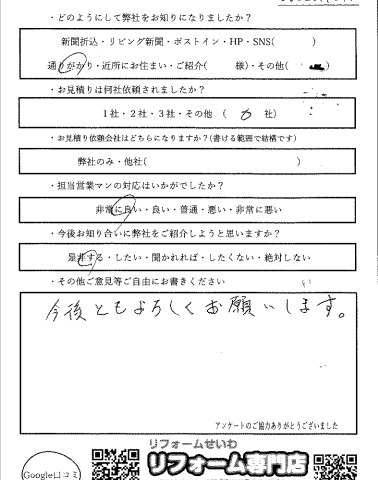 ・どのようにして弊社をお知りになりましたか？
新聞折込・リビング新聞・ポストイン・HP・SNS(　　　)
通りがかり・近所にお住まい・ご紹介(　　　様)・その他(　　　)
・お見積りは何社依頼されましたか？
1社・2社・3社・その他　(　　　社)
・お見積り依頼会社はどちらになりますか？(書ける範囲で結構です)
弊社のみ・他社(　　　)
・担当営業マンの対応はいかがでしたか？
非常に良い・良い・普通・悪い・非常に悪い
・今後お知り合いに弊社をご紹介しようと思いますか？
是非する・したい・聞かれれば・したくない・絶対しない
・その他ご意見等ご自由にお書きください
今後ともよろしくお願いします。
アンケートのご協力ありがとうございました
リフォームせいわ
リフォーム専門店
Google口コミ